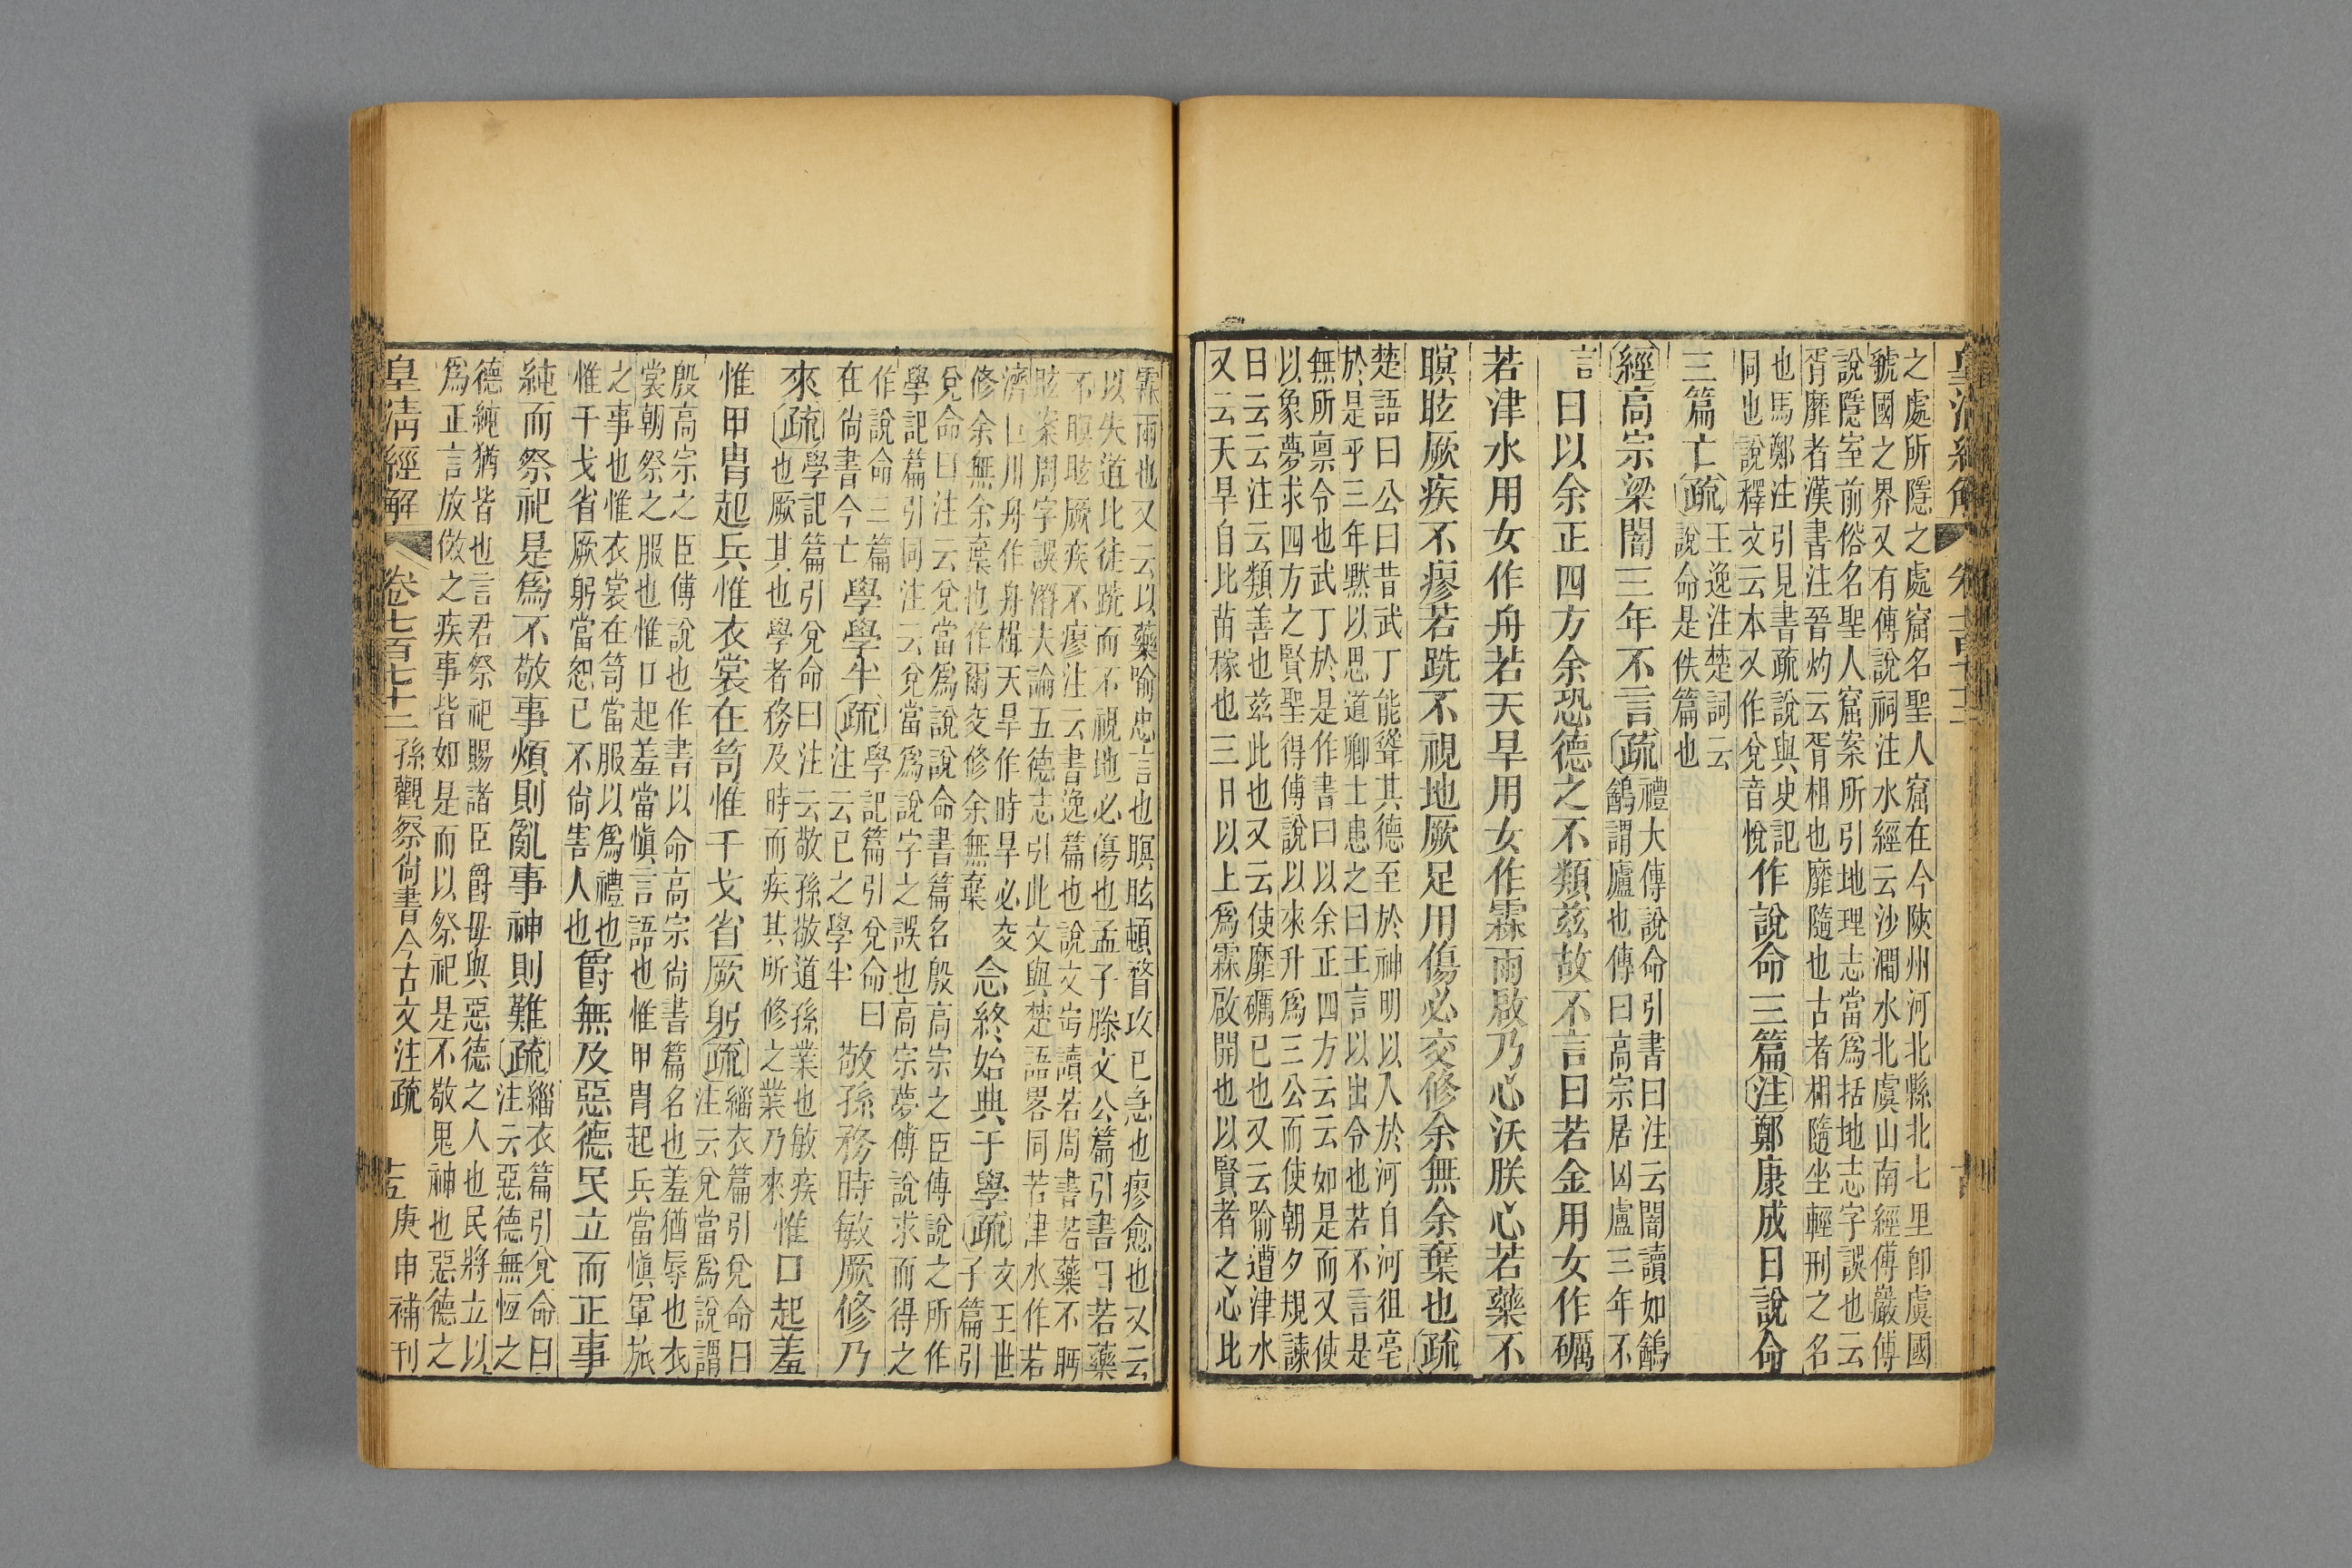 之處所隱之處窟名聖人窟在今陝州河北縣北七里卽虞國
虢國之界又有傅說祠注水經云沙澗水北虞山南經傅巖傅
說隱室前俗名聖人窟案所引地理志當爲括地志字誤也云
胥靡者漢書注晉灼云胥相也靡隨也古者相隨坐輕刑之名
也馬鄭注引見書疏說與史記
同也說釋文云本又作兌音悅
作說命三篇注鄭康成日說命
三篇亡疏
王逸注楚詞云
說命是佚篇也
經高宗梁闇三年不言疏
禮大傳說命引書曰注云闇讀如鶕
鶕謂廬也傳曰高宗居凶廬三年不
言
曰以余正四方余恐德之不類兹故不言曰若金用女作礪
若津水用女作舟若天旱用女作霖雨啟乃心沃朕心若藥不
瞑眩厥疾不瘳若跣不視地厥足用傷必交修余無余棄也疏
楚語曰公曰昔武丁能聳其德至於神明以入於河自河徂亳
於是乎三年默以思道卿士患之曰王言以出令也若不言是
無所禀令也武丁於是作書曰以余正四方云云如是而又使
以象夢求四方之賢聖得傅說以來升爲三公而使朝夕規諫
曰云云注云類善也兹此也又云使靡礪已也又云喻遭津水
又云天旱自比苗稼也三日以上爲霖啟開也以賢者之心比
霖雨也又云以藥喻忠言也瞑眩頓瞀攻已急也瘳愈也又云
以失道比徒跣而不視地必傷也孟子滕文公篇引書曰若藥
不瞑眩厥疾不瘳注云書逸篇也說文丏讀若周書若藥不眄
眩案周字誤潛夫論五德志引此文與楚語畧同若津水作若
濟巨川舟作舟楫天旱作時旱必交
修余無余棄也作爾交修余無棄
念終始典于學疏
文王世
子篇引
兌命曰注云兌當爲說說命書篇名殷高宗之臣傅說之所作
學記篇引同注云兌當爲說字之誤也高宗夢傅說求而得之
作說命三篇
在尚書今亡
學學半疏
學記篇引兌命曰
注云已之學半
敬孫務時敏厥修乃
來疏
學記篇引兌命曰注云敬孫敬道孫業也敏疾
也厥其也學者務及時而疾其所修之業乃來
惟口起羞
惟甲胄起兵惟衣裳在笥惟干戈省厥躬疏
緇衣篇引兌命曰
注云兌當爲說謂
殷高宗之臣傅說也作書以命高宗尚書篇名也羞猶辱也衣
裳朝祭之服也惟口起羞當愼言語也惟甲胄起兵當愼軍旅
之事也惟衣裳在笥當服以爲禮也
惟干戈省厥躬當恕已不尚害人也
爵無及惡德民立而正事
純而祭祀是爲不敬事煩則亂事神則難疏
緇衣篇引兌命曰
注云惡德無恆之
德純猶皆也言君祭祀賜諸臣爵毋與惡德之人也民將立以
爲正言放傚之疾事皆如是而以祭祀是不敬鬼神也惡德之
皇淸經解
卷七百七十二
孫觀察尚書今古文注疏
庚申補刊